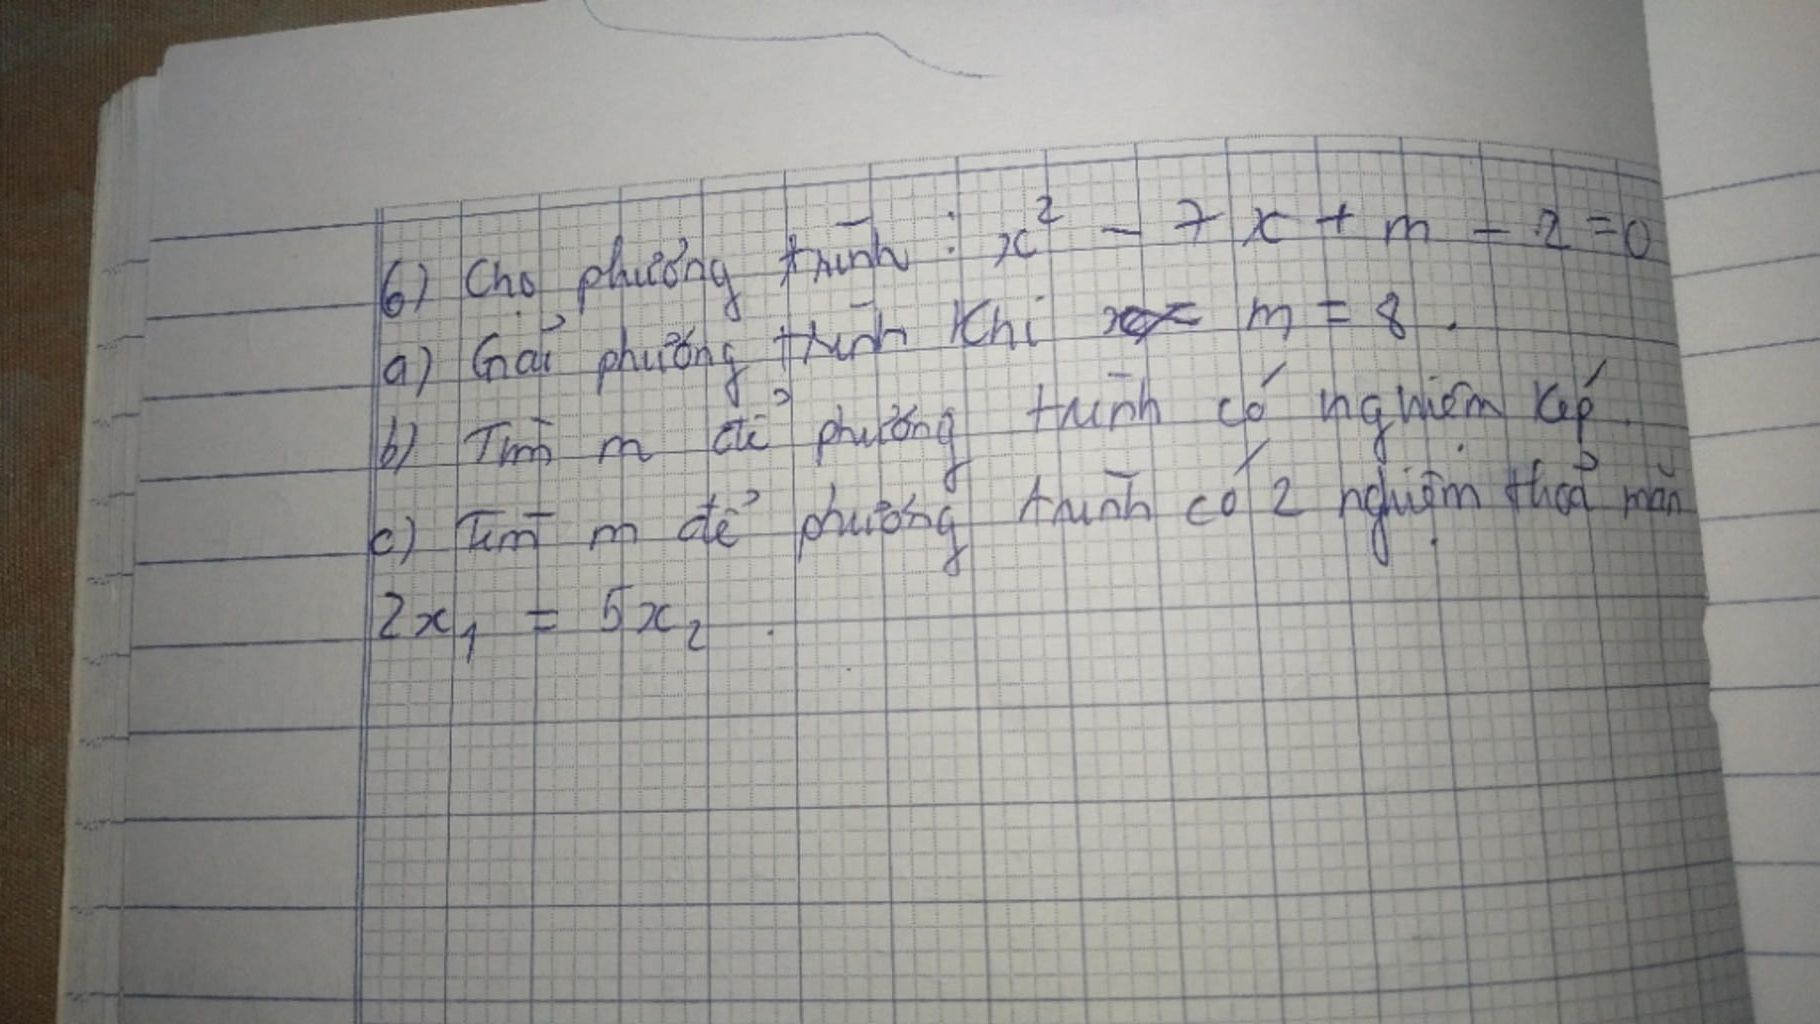 6) Cho phương trình : x² - 7x + m - 2 = 0
a) Giải phương trình khi m = 8 .
b) Tìm m để phương trình có nghiệm kép .
c) Tìm m để phương trình có 2 nghiệm thoả mãn
2x₁ = 5x₂ .